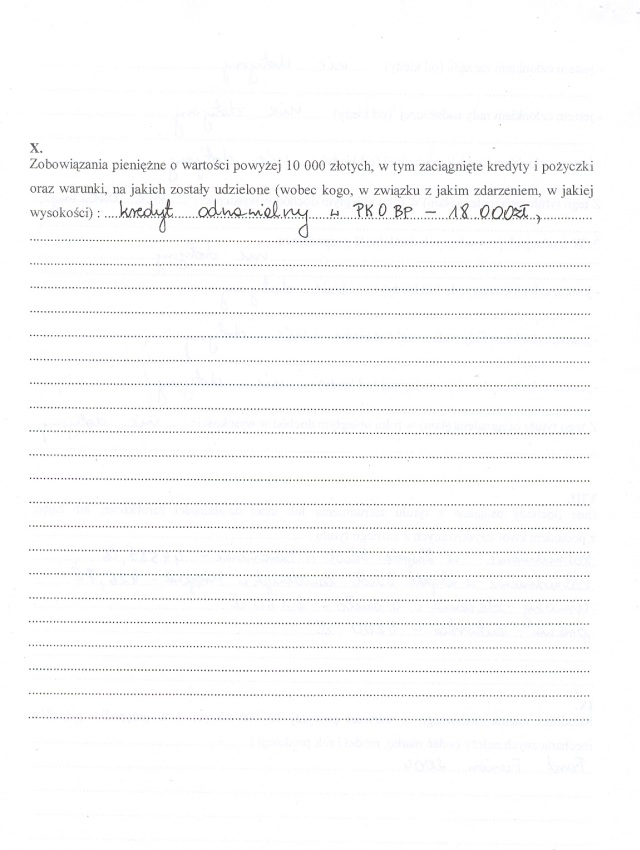 X.
Zobowiązania pieniężne o wartości powyżej 10 000 złotych, w tym zaciągnięte kredyty i pożyczki
oraz warunki, na jakich zostały udzielone (wobec kogo, w związku z jakim zdarzeniem, w jakiej
wysokości) : kredyt odnawialny w PKO BP – 18 000zł,